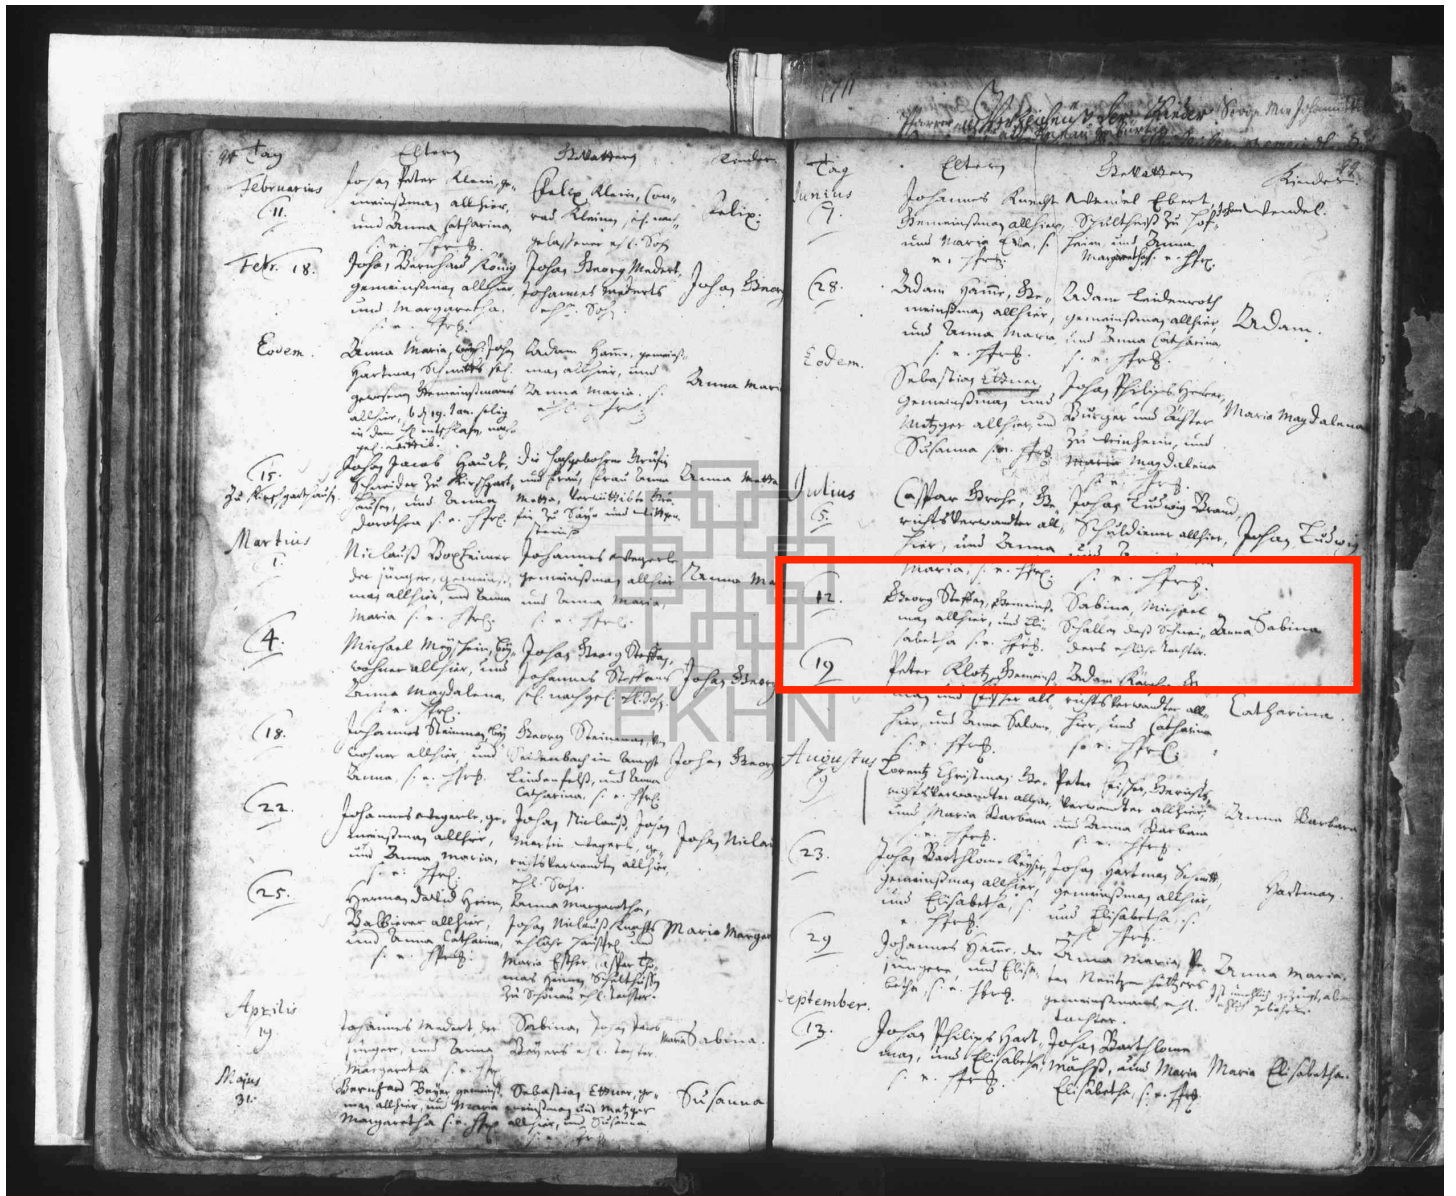 1711
94 Tag Eltern Gevattern Kinder
Februarius
11.
Johan Peter Klein, ge-
meinßman allhier,
und Anna Catharina,
s. e. hfrl.
Felix Klein, Con-
rad Kleinen, sel. nach-
gelassener ehl. Sohn
Felix.
Febr. 18.
Johan Bernhard König
gemeinßman allhier
und Margaretha.
s. e. hfrl.
Johan Georg Medert,
Johannes Mederts
ehl. Sohn
Johan Georg
Eodem.
Anna Maria, Johan
Hartman Schmitts sel.
gewesenen Gemeinßmans
allhier, 19. Jan. selig
in dem entschlafen, nach-
gel. wittib.
Adam Hamm, gemeinß-
man allhier, und
Anna Maria. s.
ehl. hfrl.
Anna Mari
15.
Johan Jacob Hauck,
Schneider zu Kirschgart-
hausen, und Anna
Dorothea s. e. hfrl.
Die hochgebohrne Gräfin
und frau, frau Anna
Metta, Verwittibte Grä-
fin zu Sayn und Wittgen-
stein
Anna Metta
Martius
1.
Niclauß Boxheimer
der jünger, gemeinß-
man allhier, und Anna
Maria s. e. hfrl.
Johannes Wegerle
gemeinßman allhier
und Anna Maria,
s. e. hfrl.
Anna Ma
4.
Michael bey-
wohner allhier, und
Anna Magdalena,
s. e. hfrl.
Johan Georg Steffan,
Johannes Steffans
sel. nachgel. ehl. Sohn.
Johan Georg
18.
Johannes Steinman, bey-
wohner allhier, und
Anna, s. e. hfrl.
Georg Steinman, von
Seidenbach im Ampt
Lindenfelß, und Anna
Catharina, s. e. hfrl.
Johan Georg
22.
Johannes Wegerle, ge-
meinßman allhier,
und Anna Maria,
s. e. hfrl.
Johan Niclauß, Johan
Martin Wegerls, ge-
richtsverwandten allhier,
ehl. Sohn.
Johan Niclau
25.
Herman David Heim,
Balbierer allhier,
und Anna Catharina,
s. e. hfrl.
Anna Margaretha,
Johan Niclauß Knechts
ehliche haußfr. und
Maria Esther, Caspar Tho-
mas Heimen, Schultheißen
zu Schönau ehl. tochter.
Maria Margar
Aprilis
19.
Johannes Medert der
jünger, und Anna
Margaretha s. e. hfr
Sabina, Johan Jacob
Beyers ehl. tochter.
Maria Sabina.
Majus
31.
Bernhard Beyer gemeinß-
man allhier, und Maria
Margaretha s. e. hfrl.
Sebastian Ettner, ge-
meinßman und Metzger
allhier, und Susanna
s. e. hfrl.
Susanna
Tag Eltern Gevattern Kinder.
Junius
7.
Johannes Knecht
Gemeinßman allhier,
und Maria Eva, s.
e. hfrl.
Wendel Ebert,
Schultheiß zu Hof-
heim, und Anna
Margaretha s. e. hfrl.
Johan Wendel.
28.
Adam Hamm, Ge-
meinßman allhier,
und Anna Maria
s. e. hfrl.
Adam Leidenroth
gemeinßman allhier,
und Anna Catharina
s. e. hfrl.
Adam.
Eodem.
Sebastian Ettner,
Gemeinßman und
Metzger allhier, und
Susanna s. e. hfrl.
Johan Philips
Burger und
zu Weinheim, und
Maria Magdalena
s. e. hfrl.
Maria Magdalena
Julius
5.
Caspar Grohe, Ge-
richtsverwandter all-
hier, und Anna
Maria, s. e. hfrl.
Johan Ludwig Brand,
Schuldiener allhier,
und
s. e. hfrl.
Johan Ludwig
12.
Georg Steffan, Gemeinß-
man allhier, und Eli-
sabetha s. e. hfrl.
Sabina, Michael
Schallen deß Schnei-
ders ehliche tochter.
Anna Sabina
19
Peter Klotz, Gemeinß-
man und Fischer all-
hier, und Anna Salome,
s. e. hfrl.
Adam Ge-
richtsverwandter all-
hier, und Catharina
s. e. hfrl.
Catharina.
Augustus
9
Lorentz Christman, Ge-
richtsverwandter allhier,
und Maria Barbara
s. e. hfrl.
Peter Fischer, Gerichts-
verwandter allhier,
und Anna Barbara
s. e. hfrl.
Anna Barbara
23.
Johan Barthlome Keyser,
gemeinßman allhier,
und Elisabetha, s.
e. hfrl.
Johan Hartman Schmitt,
gemeinßman allhier,
und Elisabetha, s.
ehl. hfrl.
Hartman.
29
Johannes Hamm, der
jüngere, und Elisa-
betha, s. e. hfrl.
Anna Maria, Pe-
ter
gemeinßmans ehl.
tochter.
Anna Maria,
ist unehlich gezeugt, aber
ehlich gebohren.
September.
13.
Johan Philips Hart-
man, und Elisabetha,
s. e. hfrl.
Johan Barthlome
und Maria
Elisabetha, s. e. hfrl.
Maria Elisabetha.
EKHN